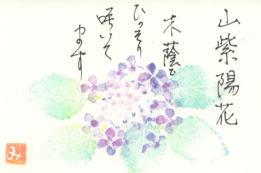 山紫陽花
木蔭で
ひっそり
咲いて
います
み